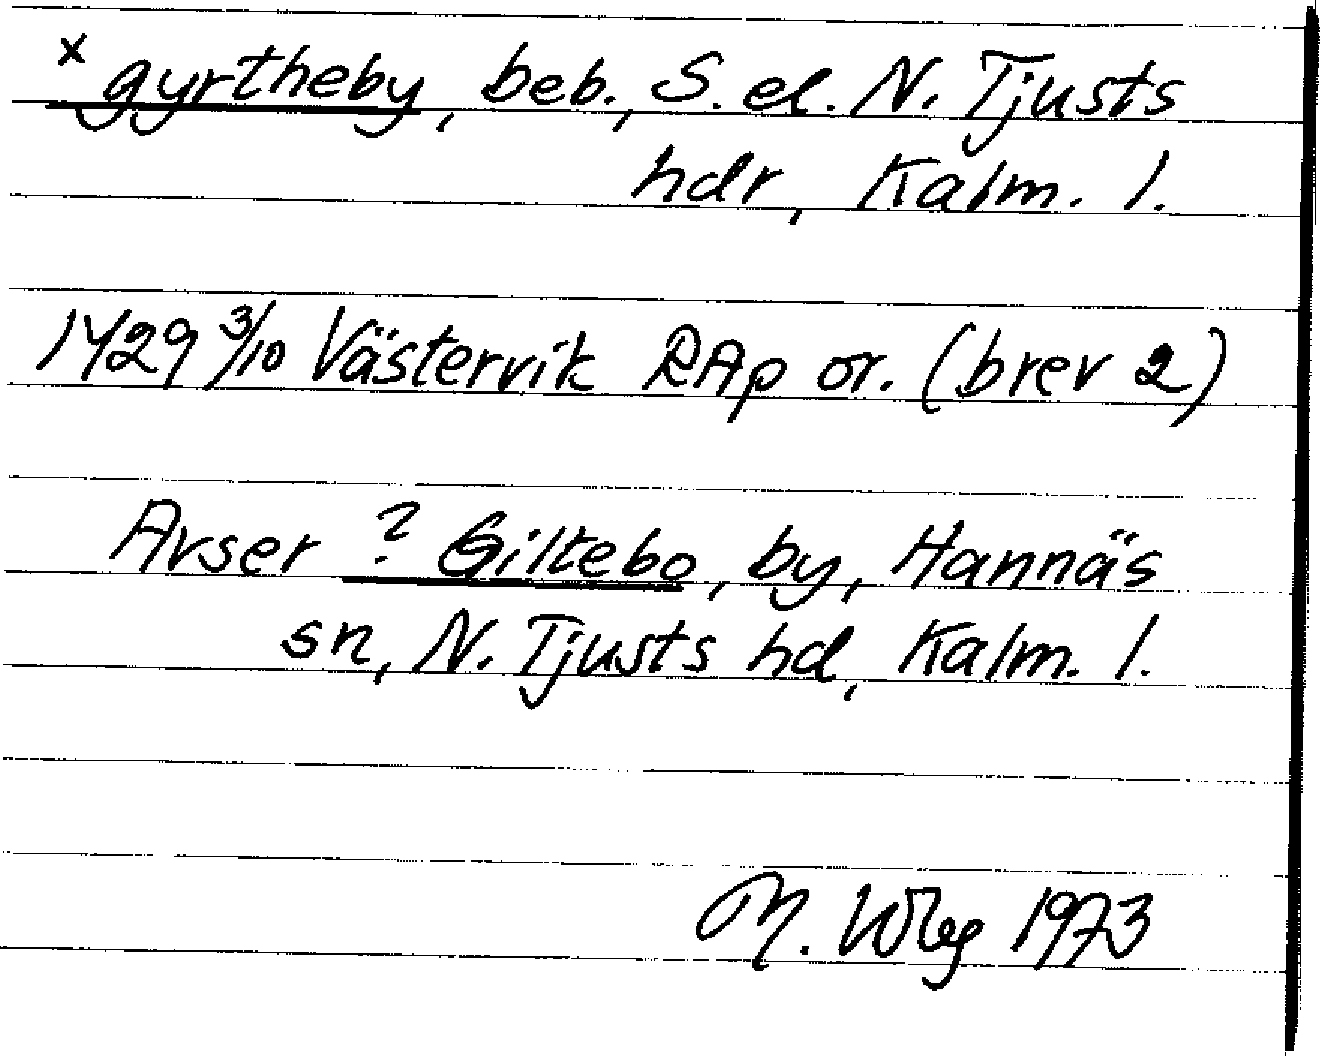 x gyrtheby, beb., S. el. N. Tjusts
hdr, Kalm. l.
1429 3/10 Västervik RAp or. (brev 2)
Avser ? Giltebo, by, Hannäs
sn, N. Tjusts hd, Kalm. l.
M. Wbg 1973